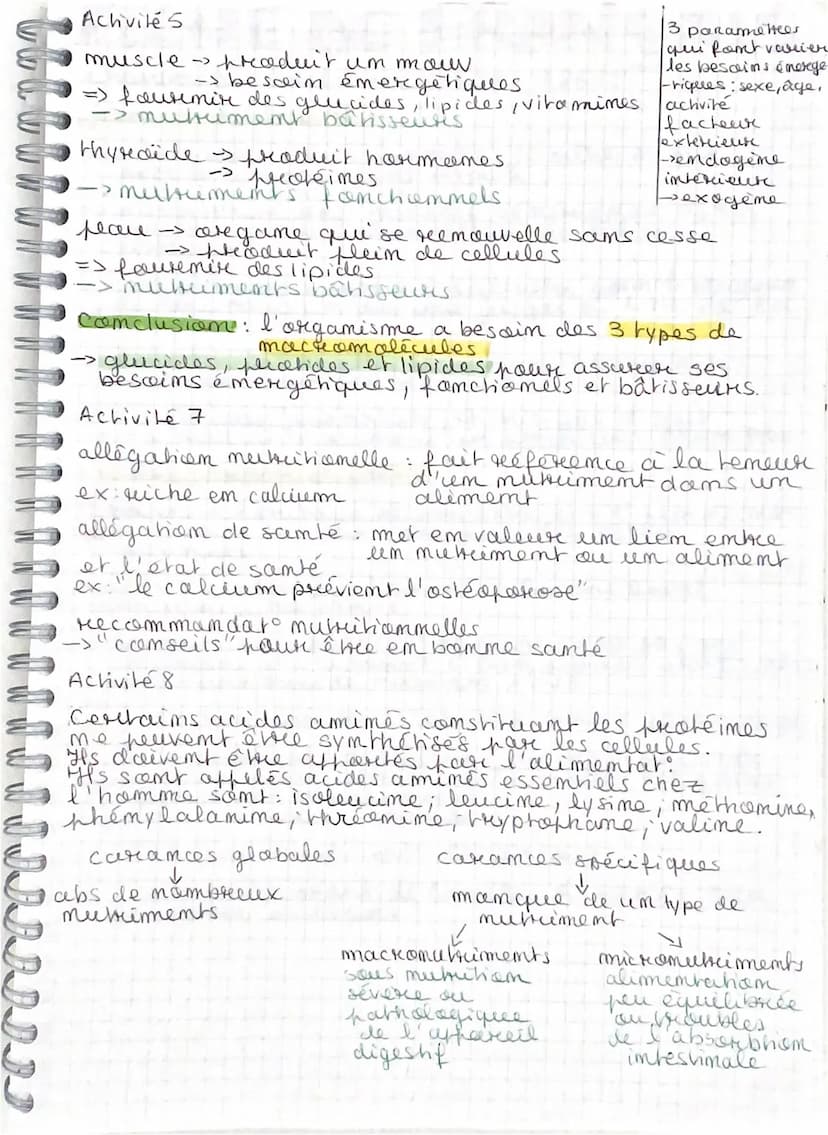 Activité 5
muscle → produit un mouv
→ besoin énergétiques
=> fournir des glucides, lipides, vitamines
→ nutriment bâtisseurs
thyroïde → produit hormones
→ protéines
→ nutriments fonctionnels
peau → organe qui se renouvelle sans cesse
→ produit plein de cellules
=> fournir des lipides
→ nutriments bâtisseurs
3 paramètres
qui font varier
les besoins énergé
-tiques : sexe, âge,
activité
facteur
extérieur
→ endogène
intérieur
→ exogène
Conclusion : l'organisme a besoin des 3 types de
macromolécules
→ glucides, protides et lipides pour assurer ses
besoins énergétiques, fonctionels et bâtisseurs.
Activité 7
allégation nutritionelle : fait référence à la teneur
d'un nutriment dans un
ex : riche en calcium aliment
allégation de santé : met en valeur un lien entre
un nutriment ou un aliment
et l'état de santé
ex : "le calcium prévient l'ostéoporose"
reccommandat° nutritionnelles
→ "conseils" pour être en bonne santé
Activité 8
Certains acides aminés constituant les protéines
ne peuvent être synthétisés par les cellules.
Ils doivent être apportés par l'alimentat°
Ils sont appelés acides aminés essentiels chez
l'homme sont : isoleucine ; leucine, lysine ; méthonine,
phénylalanine ; thréonine ; tryptophane ; valine.
carances globales
↓
abs de nombreux
nutriments
carances spécifiques
↓
manque de un type de
nutriment
↙ ↘
macronutriments
sous nutrition
sévère ou
pathologique
de l'appareil
digestif
micronutriments
alimentation
peu équilibrée
ou troubles
de l'absorbtion
intestinale